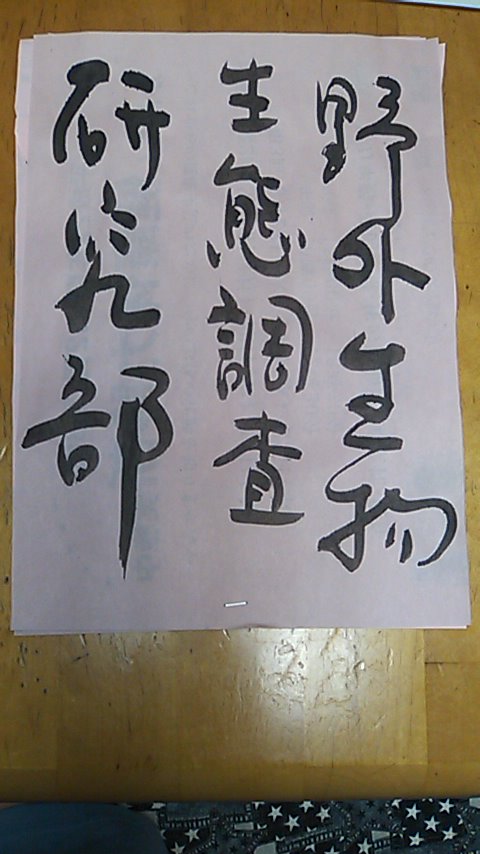 野外生物
生態調査
研究部